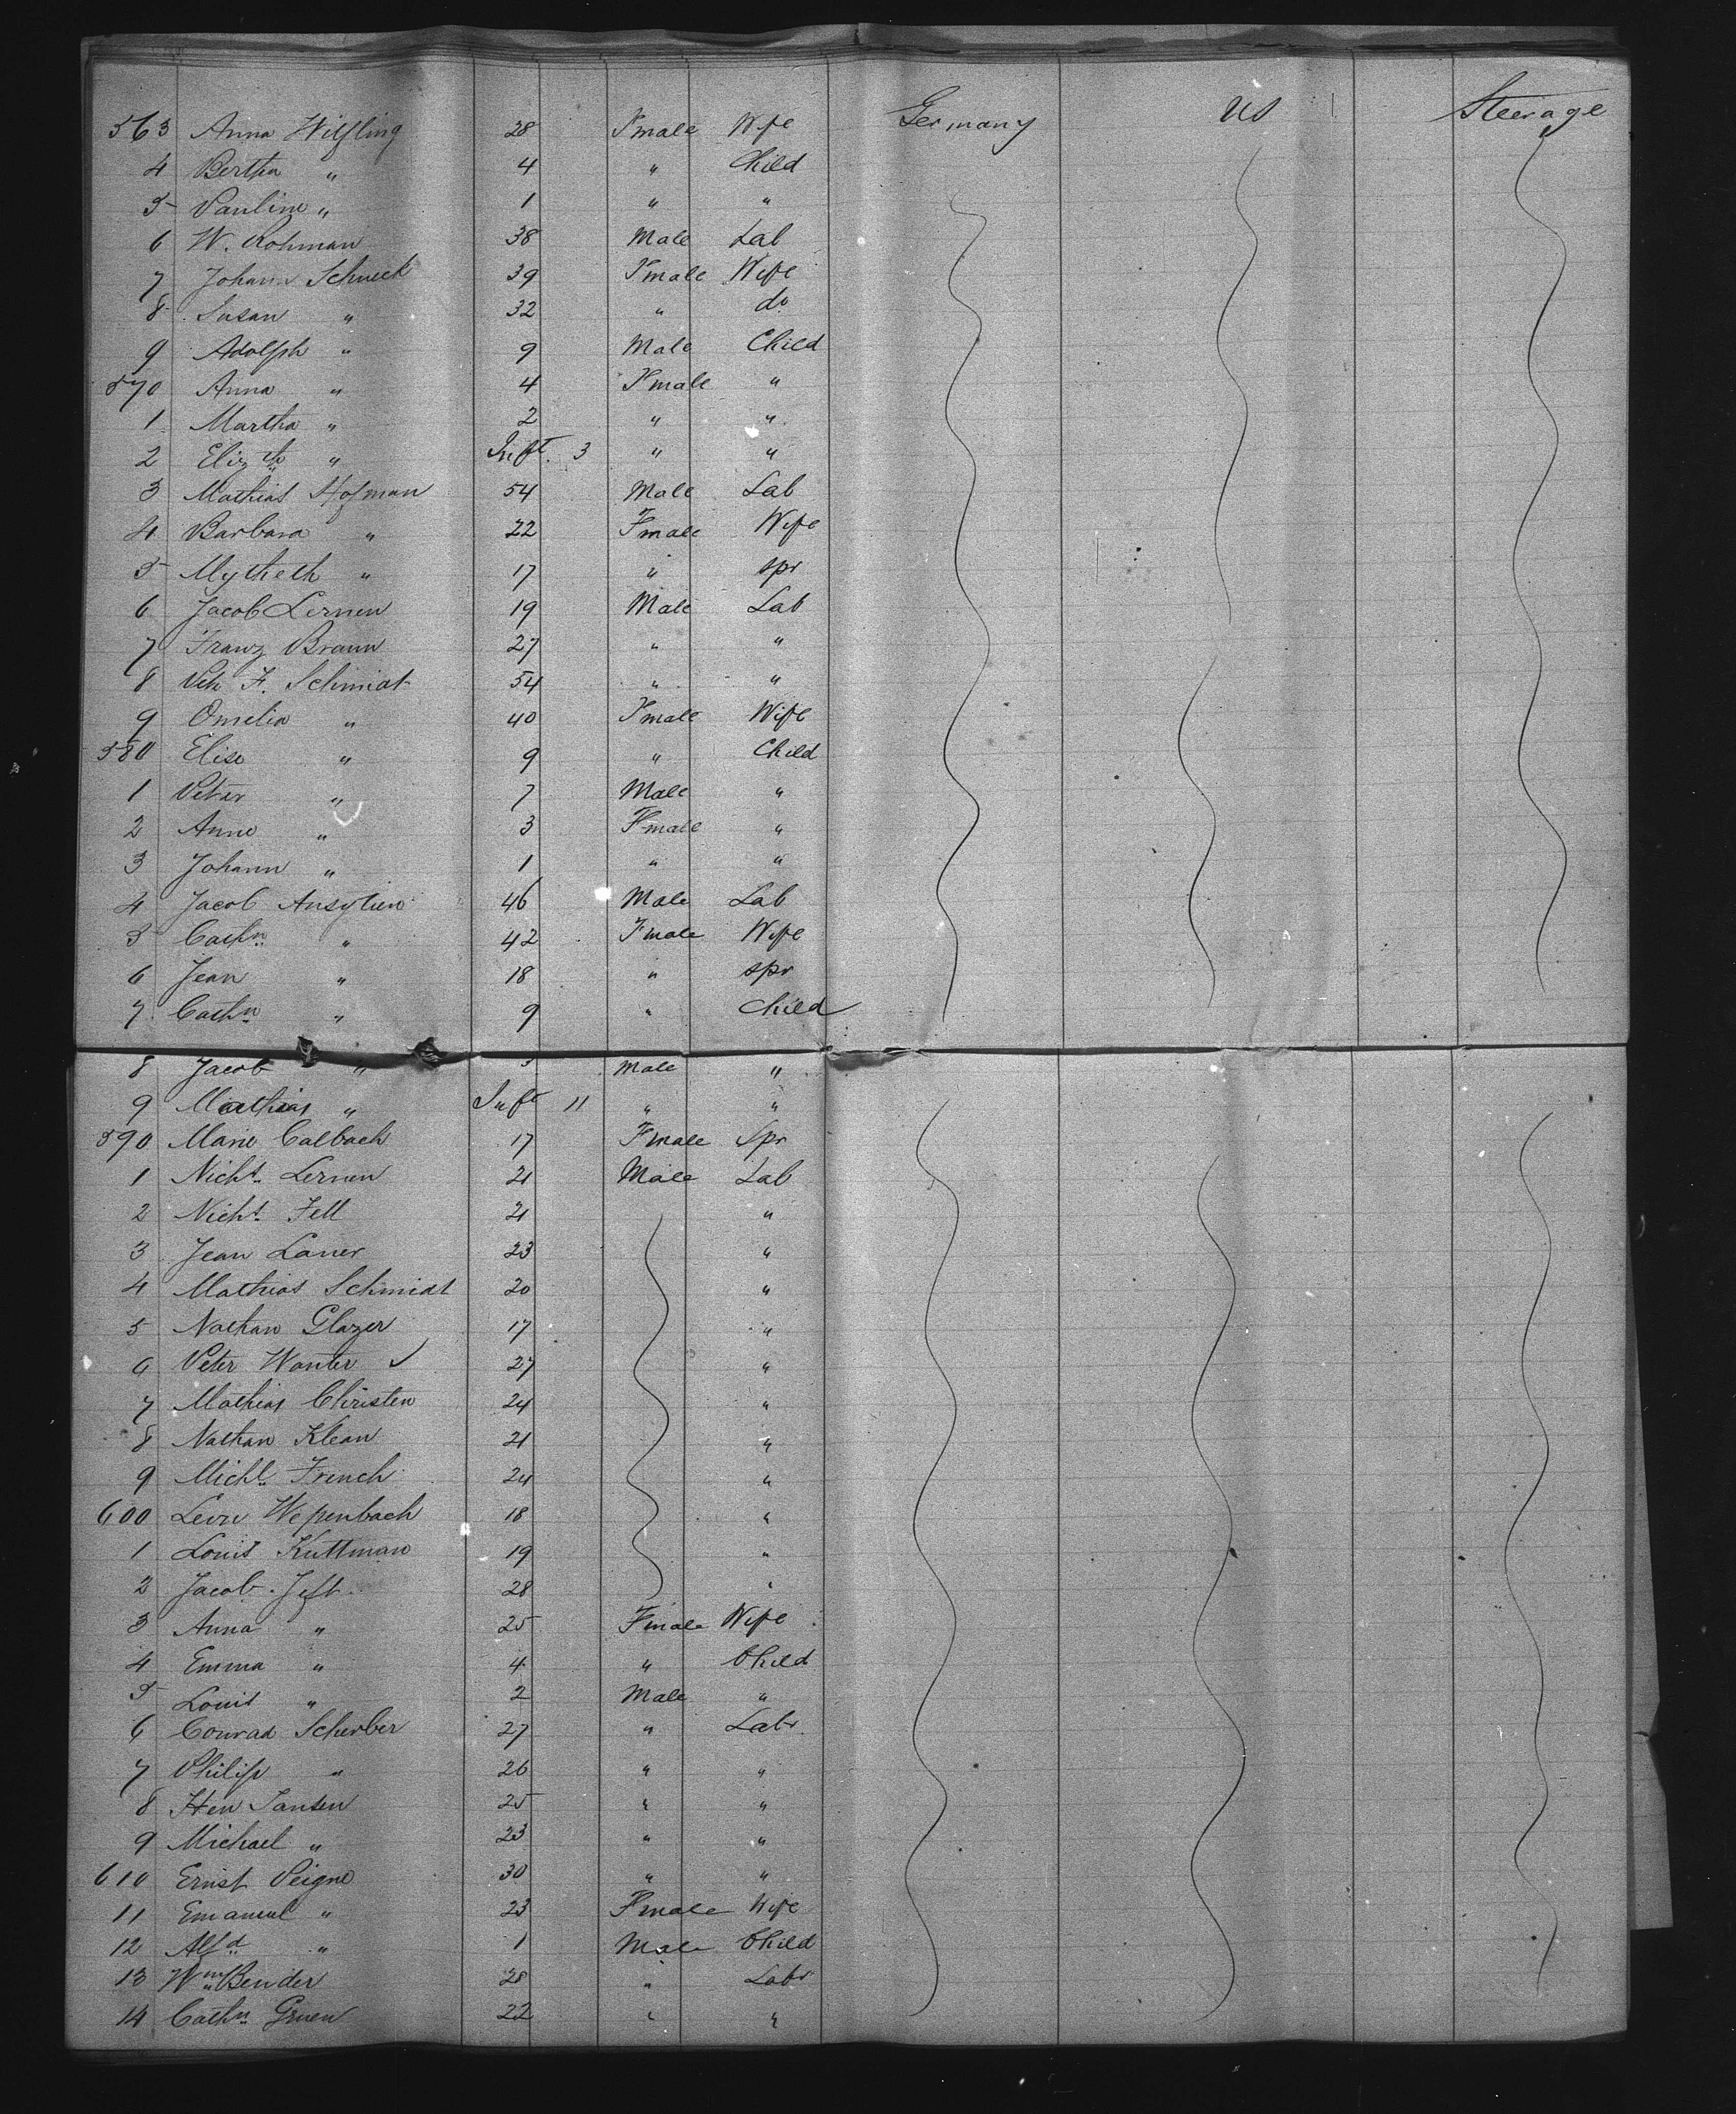 563 Anna Wilfling 28 Fmale Wife Germany US Steerage
4 Bertha " 4 " Child
5 Pauline " 1 " "
6 W. Rohman 38 Male Lab
7 Johann Schneck 39 Fmale Wife
8 Susan " 32 " do
9 Adolph " 9 Male Child
570 Anna " 4 Fmale "
1 Martha " 2 " "
2 Elizth " Inft. 3 " "
3 Mathias Hofman 54 Male Lab
4 Barbara " 22 Fmale Wife
5 " 17 " spr
6 Jacob Lernen 19 Male Lab
7 Franz Braun 27 " "
8 F. Schmidt 54 " "
9 Omelia " 40 Fmale Wife
580 Elise " 9 " Child
1 Peter " 7 Male "
2 Anne " 3 Fmale "
3 Johann " 1 " "
4 Jacob Ansylien 46 Male Lab
5 Cathn " 42 Fmale Wife
6 Jean " 18 " spr
7 Cathn " 9 " Child
8 Jacob " 3 Male "
9 Mathias " Inft 11 " "
590 Marie Calbach 17 Fmale Spr
1 Nichs. Lernen 21 Male Lab
2 Nichs. Fell 21 "
3 Jean Laner 23 "
4 Mathias Schmidt 20 "
5 Nathan Glazer 17 "
6 Peter Wanter ✓ 27 "
7 Mathias Christen 24 "
8 Nathan Klean 21 "
9 Michl. French 24 "
600 Wepenbach 18 "
1 Louis Kuttman 19 "
2 Jacob Jeft 28 "
3 Anna " 25 Fmale Wife
4 Emma " 4 " Child
5 Louis " 2 Male "
6 Conrad Scherber 27 " Labr.
7 Philip " 26 " "
8 Hen Jansen 25 " "
9 Michael " 23 " "
610 Ernst Peigne 30 " "
11 Emanuel " 23 Fmale Wife
12 Alfd " 1 Male Child
13 Wm Bender 28 " Labr
14 Cathn. Gruen 22 " "